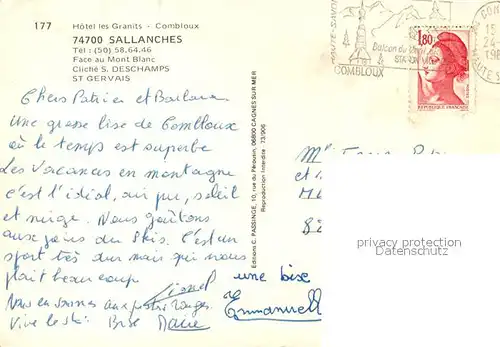 177 Hôtel les Granits - Combloux
74700 SALLANCHES
Tél : (50) 58.64.46
Face au Mont Blanc
Cliché S. DESCHAMPS
ST GERVAIS
Chers Patrica et Barbara
Une grosse bise de Combloux
où le temps est superbe
Les Vacances en montagne
c'est l'idéal, air pur, soleil
et neige. Nous goûtons
aux joies du skis. C'est un
sport très dur mais qui nous
plait beaucoup
Lionel
Nous en sommes aux pistes rouges.
Vive le ski. Bise Marie
une bise
Emmanuelle
Editions C. PASSINGE, 10, rue du Périquin, 06800 CAGNES SUR MER
Reproduction Interdite 73/906
HAUTE-SAVOIE
Balcon du
COMBLOUX
1,80
REPUBLIQUE FRANÇAISE
COM
15
19
HAUTE
et
8
privacy protection
Datenschutz